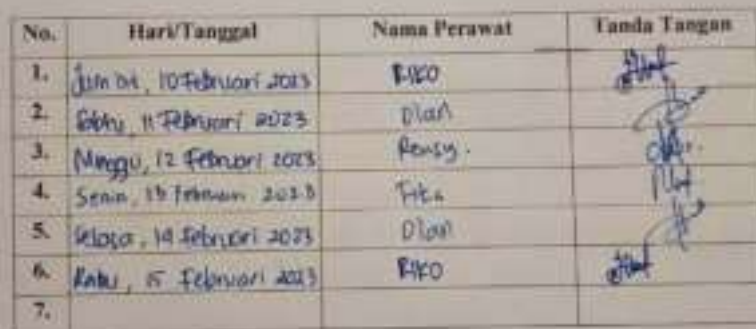 No. Hari/Tanggal Nama Perawat Tanda Tangan
1. Jum'at, 10 Februari 2023 RIKO
2. Sabtu, 11 Februari 2023 Dian
3. Minggu, 12 Februari 2023 Rensy.
4. Senin, 13 Februari 2023 Fita
5. Selasa, 14 Februari 2023 Dian
6. Rabu, 15 Februari 2023 RIKO
7.